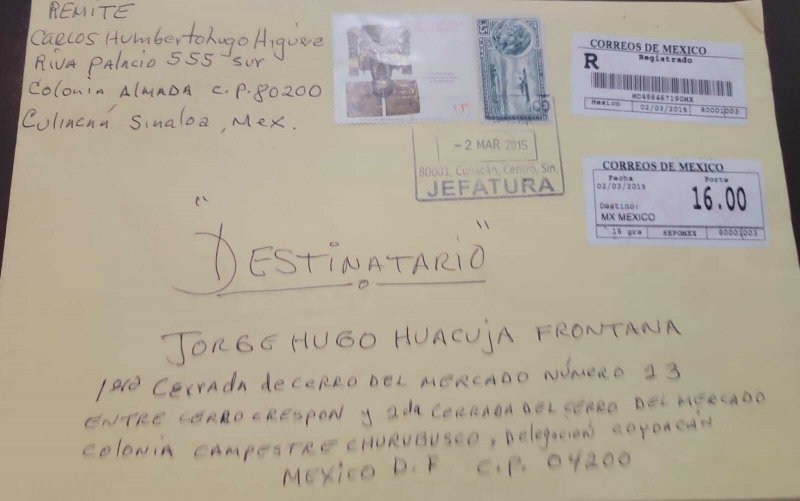 REMITE
Carlos Humbertohugo Higuere
Riva Palacio 555 sur
Colonia ALMADA C.P. 80200
Culiacán Sinaloa, Mex.
CORREOS DE MEXICO
R Registrado
MC496467190MX
Mexico 02/03/2015 80001003
- 2 MAR 2015
80001, Culiacán, Centro, Sin.
JEFATURA
CORREOS DE MEXICO
Fecha Porte
02/03/2015 16.00
Destino:
MX MEXICO
18 grs SEPOMEX 80001003
"DESTINATARIO"
JORGE HUGO HUACUJA FRONTANA
1era Cerrada de CERRO DEL MERCADO NÚMERO 13
ENTRE CERRO CRESPON y 2da CERRADA DEL CERRO DEL MERCADO
COLONIA CAMPESTRE CHURUBUSCO, Delegación COYOACÁN
MEXICO D.F C.P. 04200